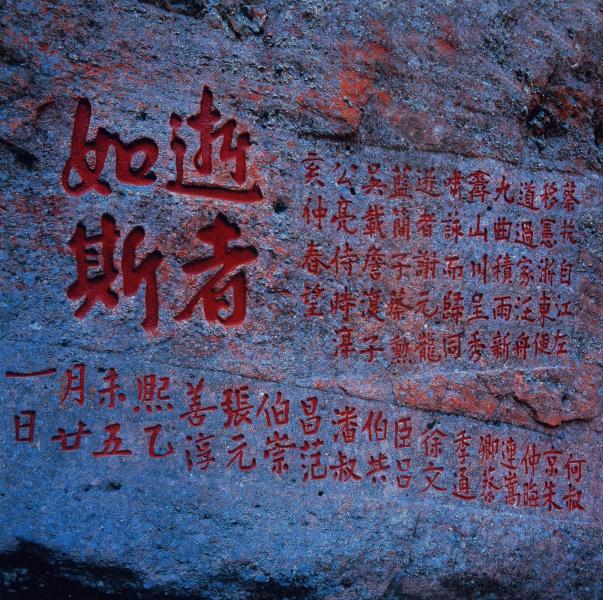 蔡抗自江左
移憲浙東便
道過家泛舟
九曲積雨新
霽山川呈秀
嘯詠而歸同
遊者謝元龍
藍簡子蔡勲
吳載詹復子
公亮侍時淳
亥仲春望
逝者
如斯
何叔
京朱
仲晦
連嵩
卿蔡
季通
徐文
臣呂
伯共
潘叔
昌范
伯崇
張元
善淳
熙乙
未五
月廿
一日